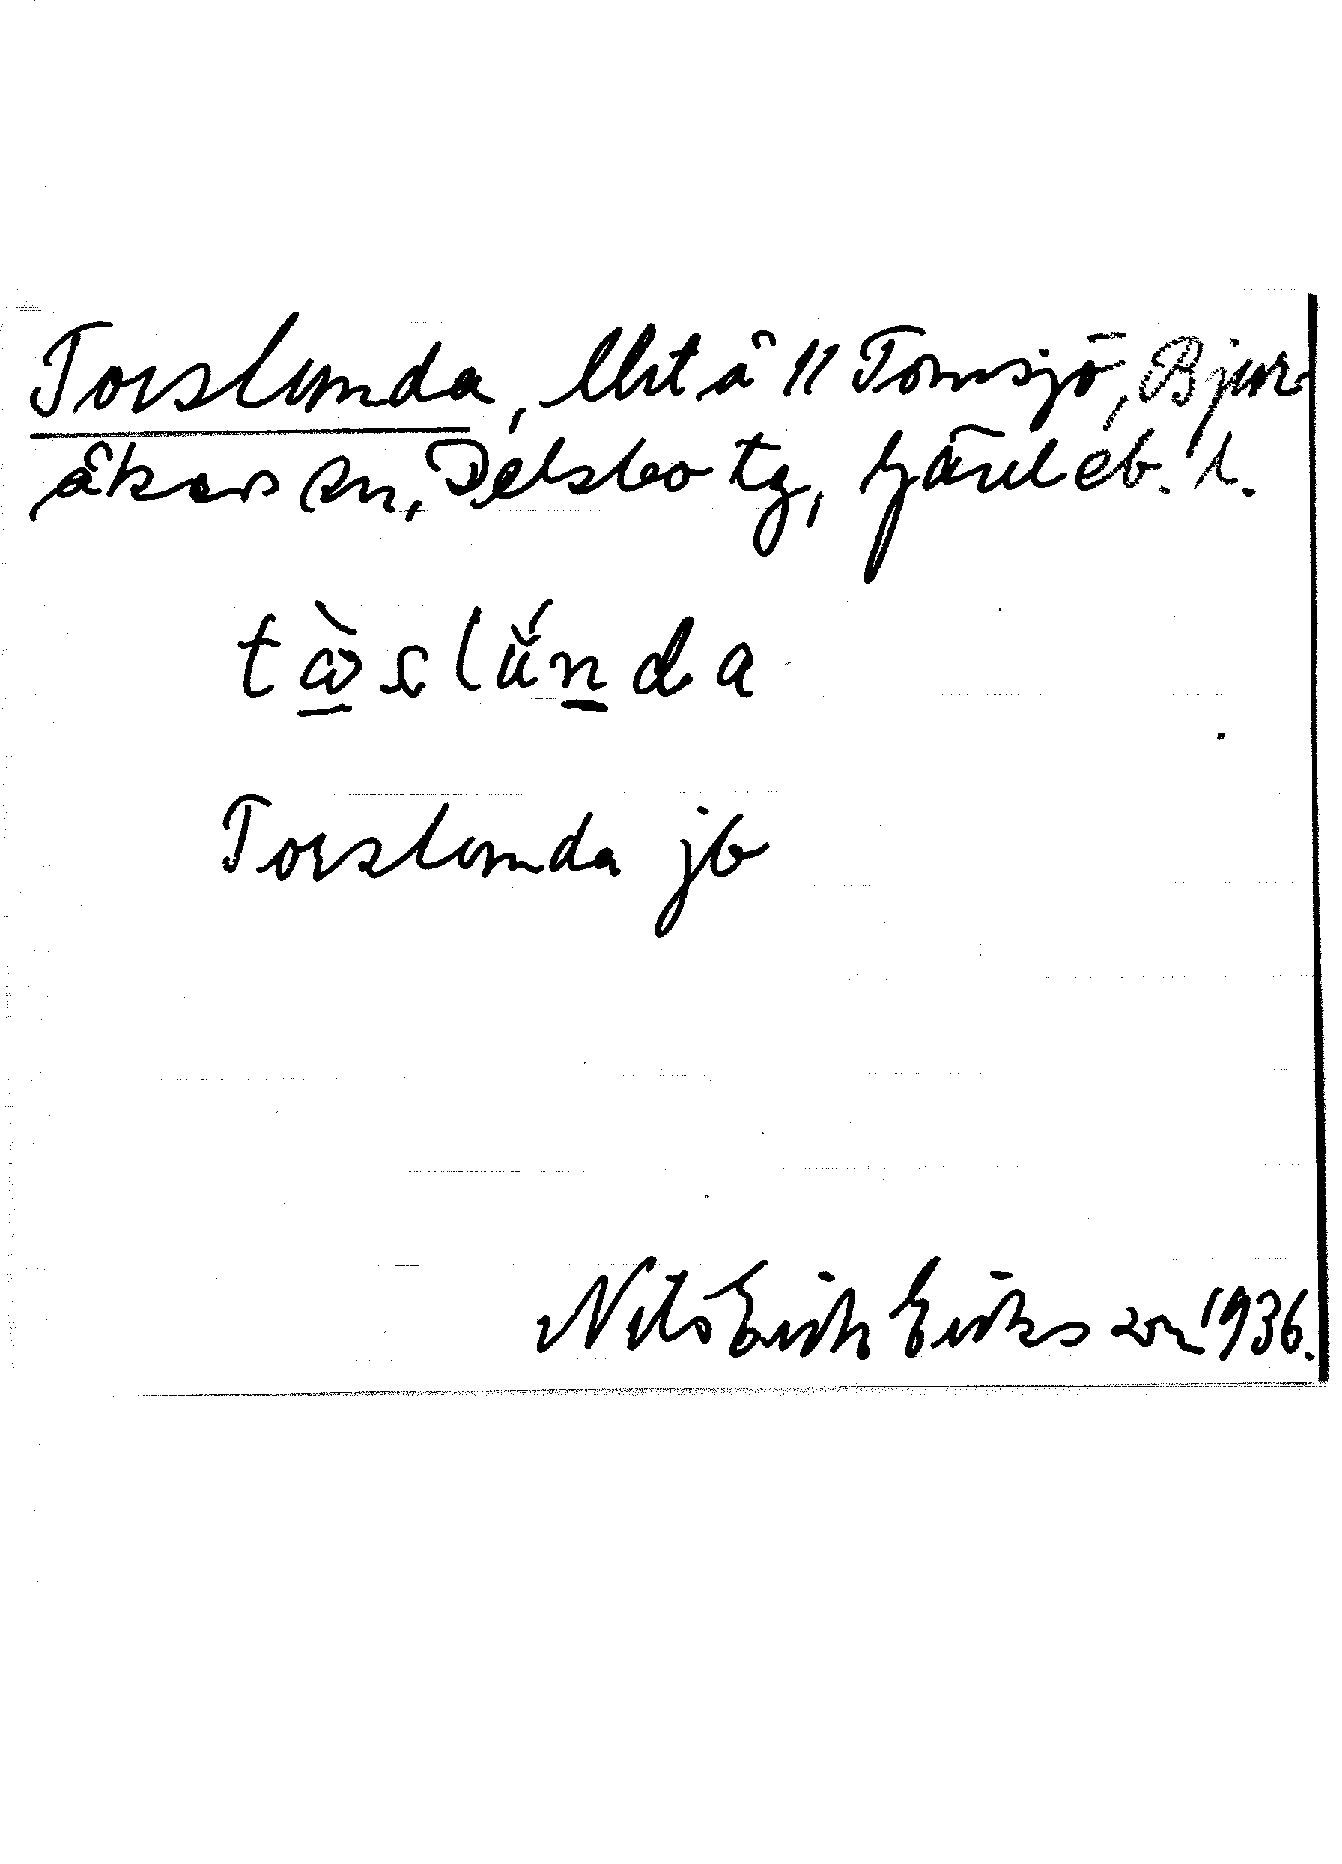 Torslunda, lht å 11 Tomsjö, Bjur-
åkers sn, Delsbo tg, Gävleb. l.
tꞷ̀slúnda
Torslunda jb
Nils Erik Eriksson 1936.